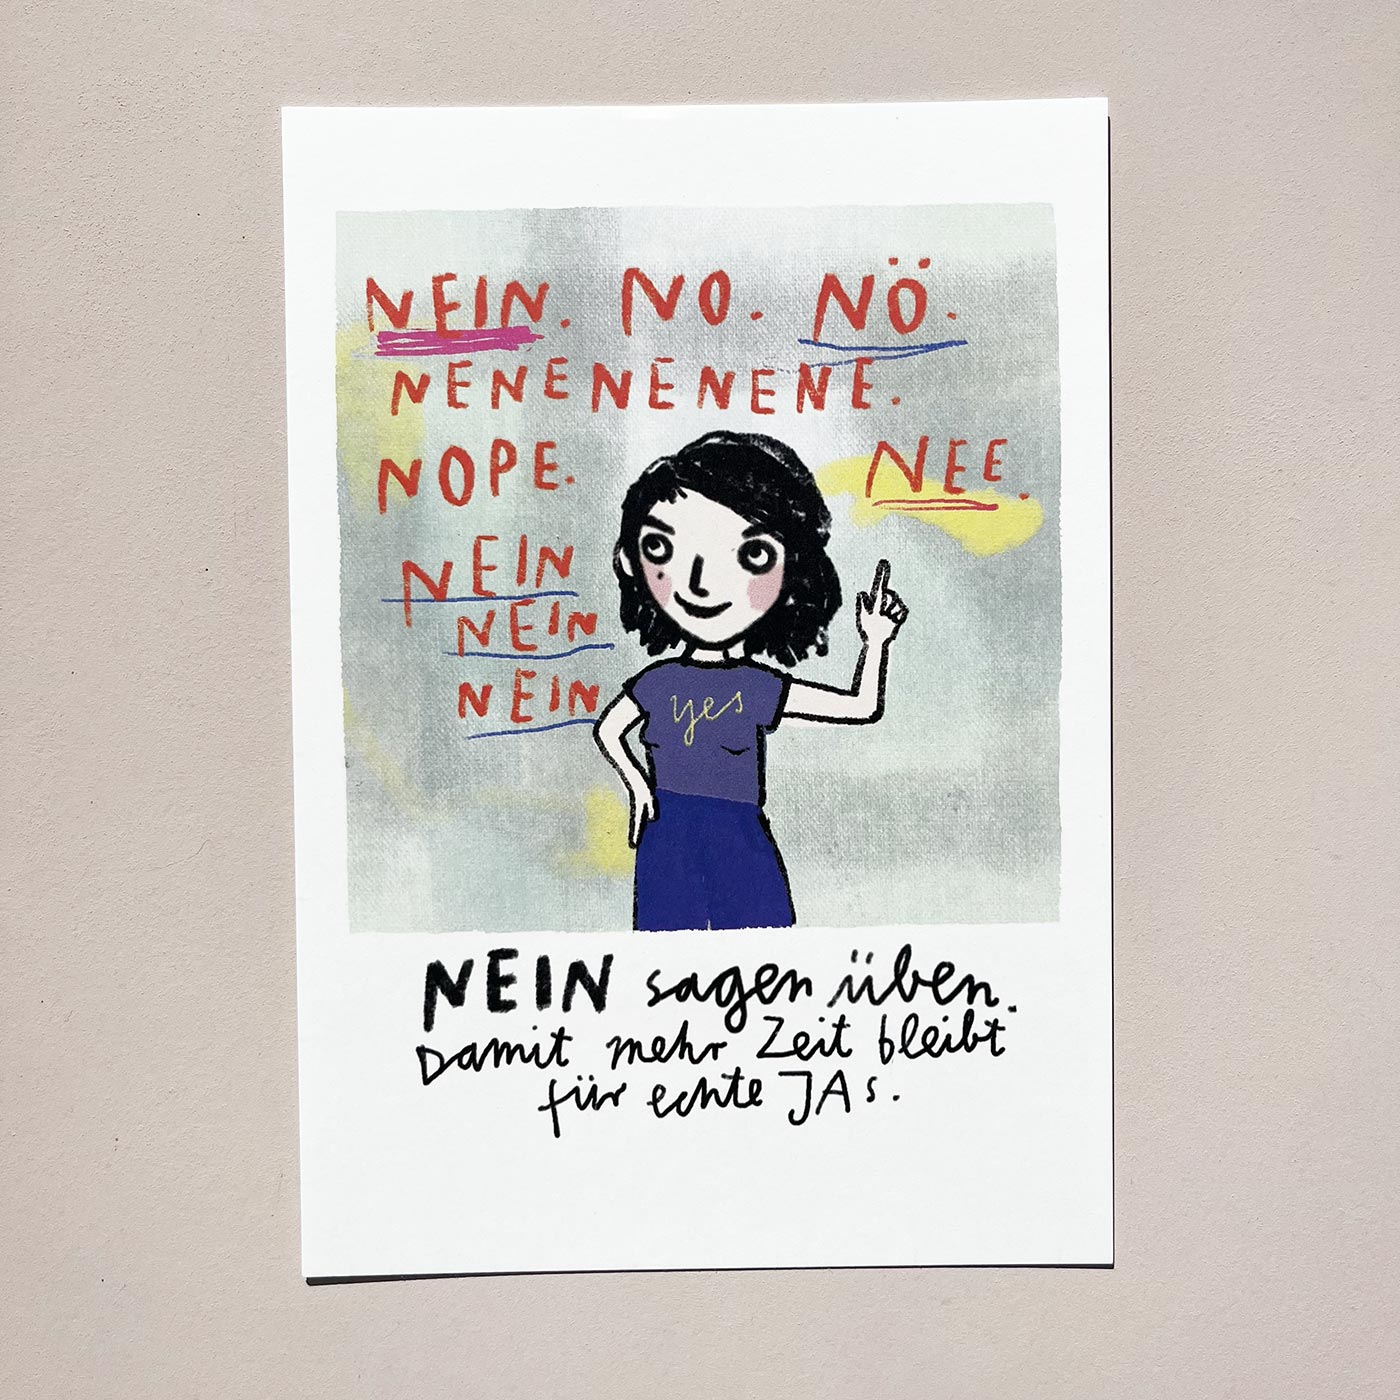 NEIN. NO. NÖ.
NENENENENENE.
NOPE. NEE.
NEIN
NEIN
NEIN
yes
NEIN sagen üben.
Damit mehr Zeit bleibt
für echte JAs.